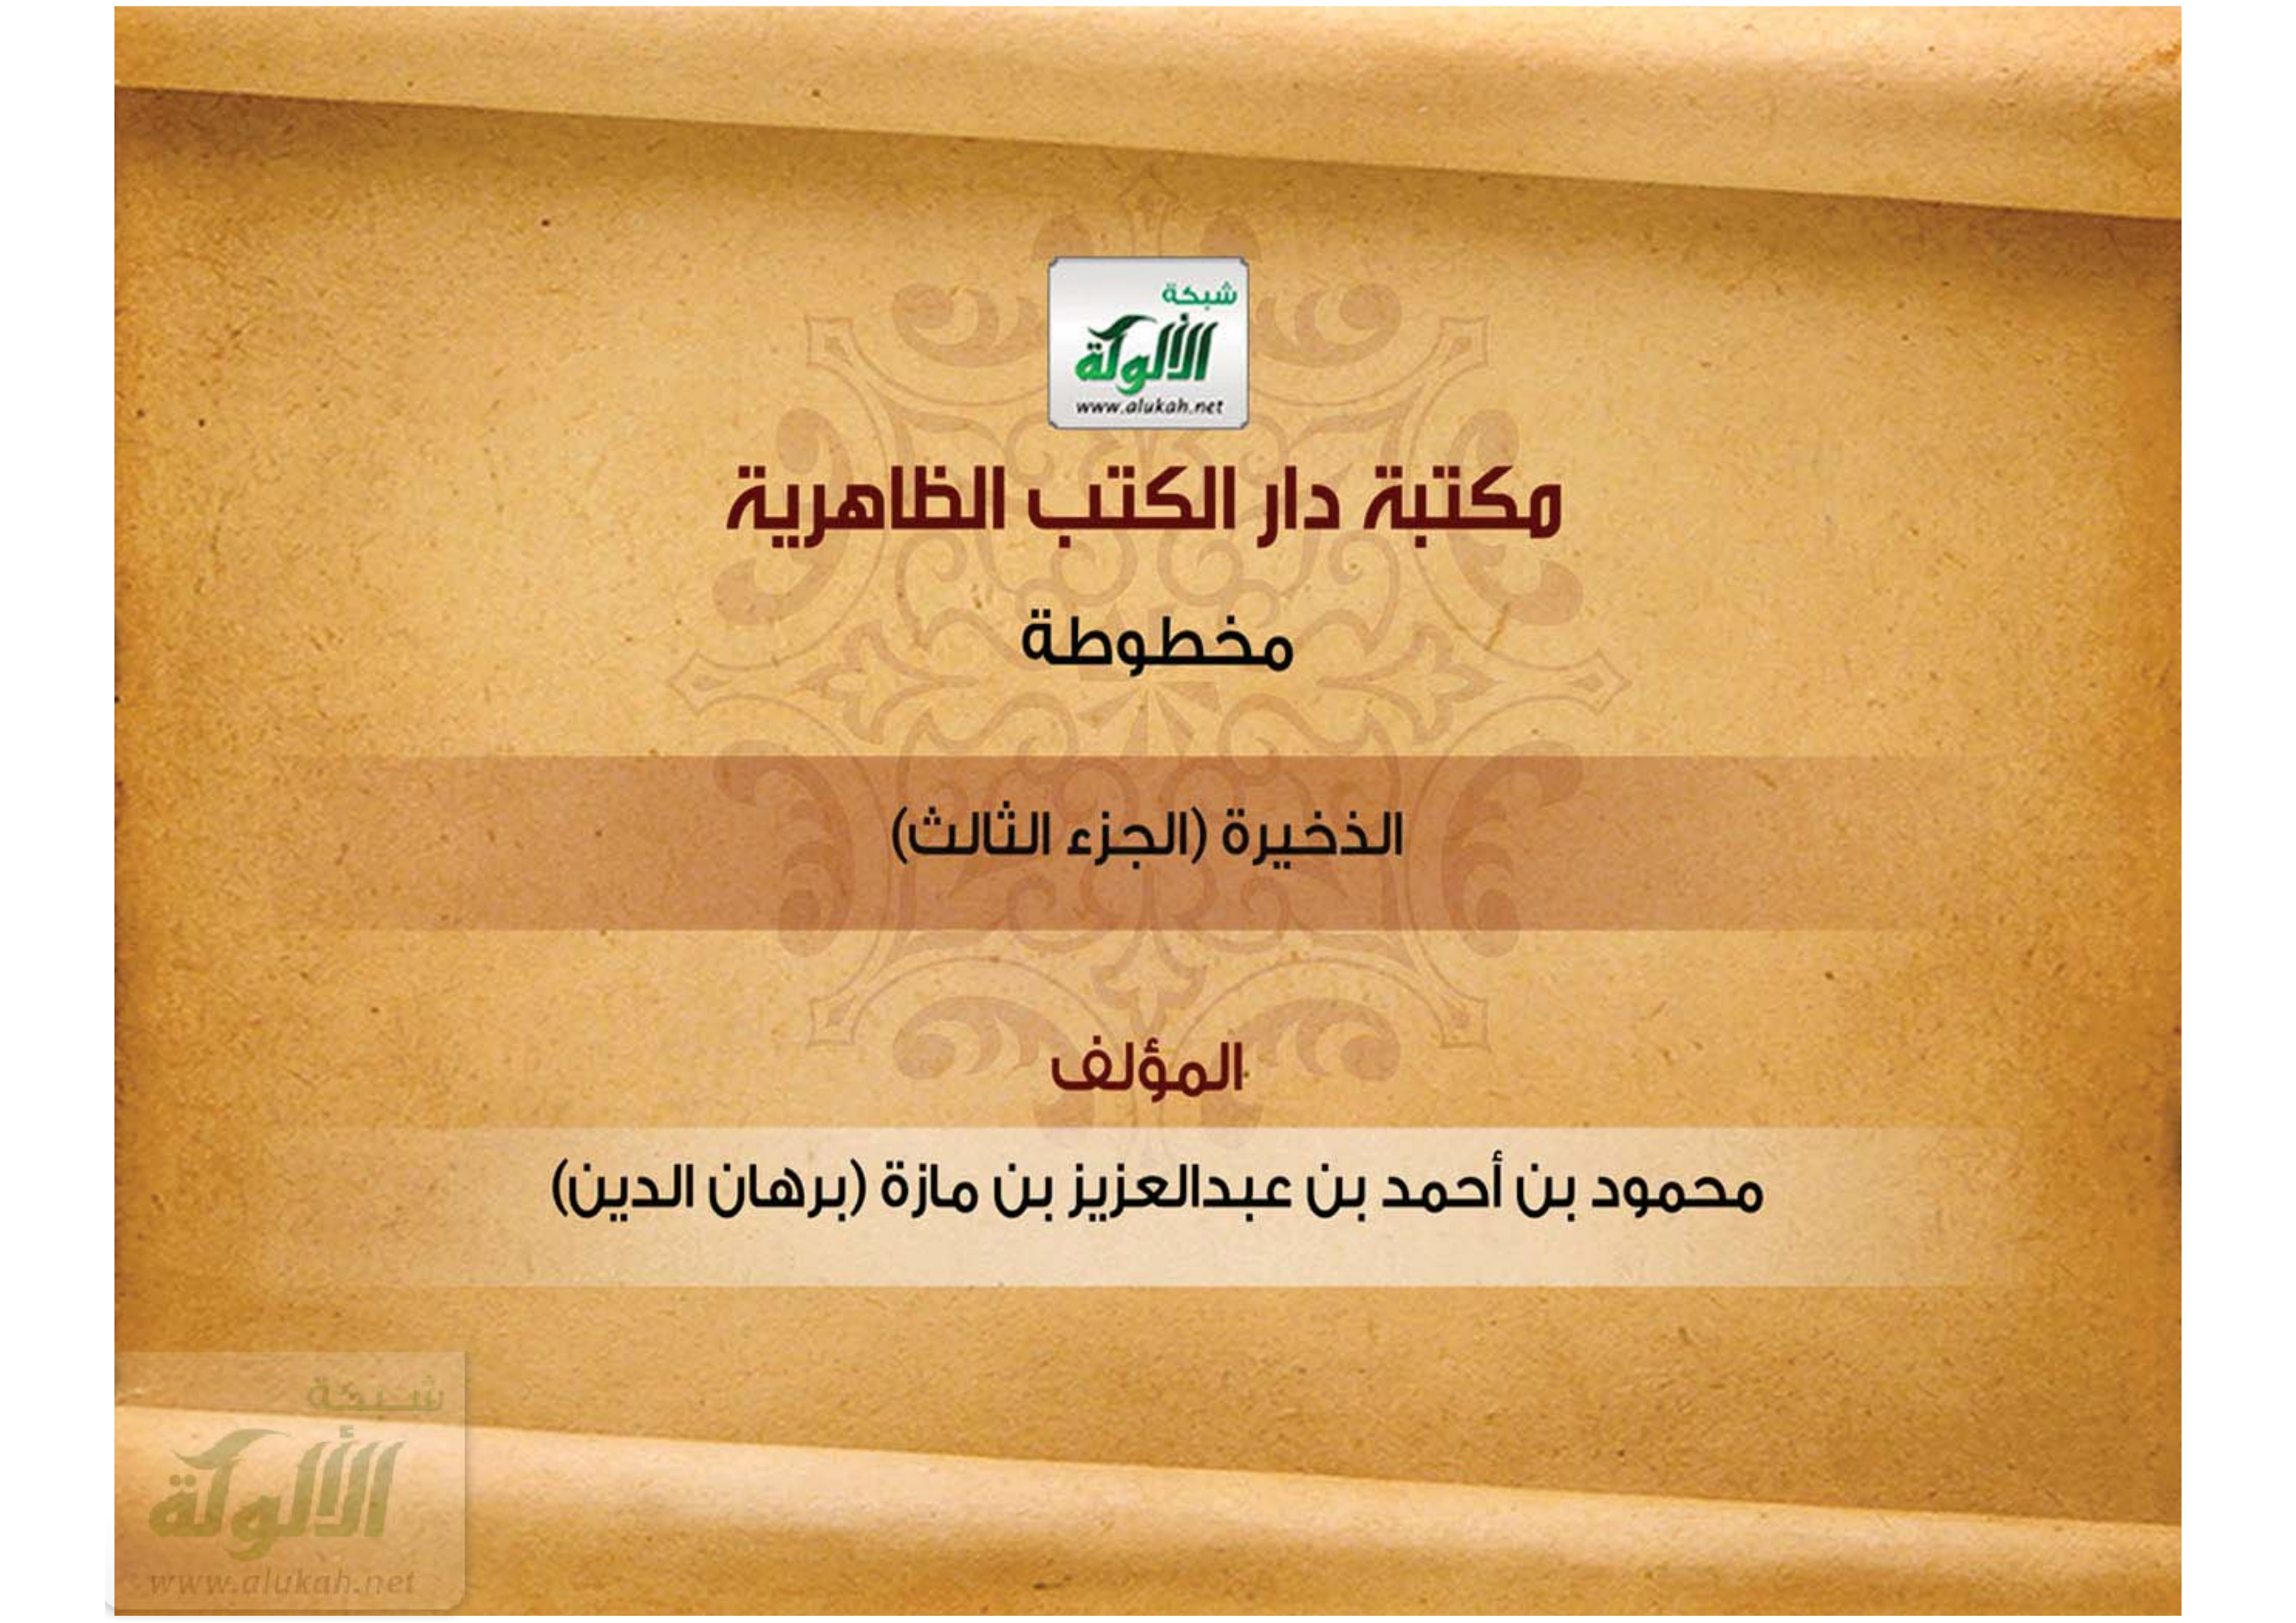 شبكة
الألوكة
www.alukah.net
مكتبة دار الكتب الظاهرية
مخطوطة
الذخيرة (الجزء الثالث)
المؤلف
محمود بن أحمد بن عبدالعزيز بن مازة (برهان الدين)
شبكة
الألوكة
www.alukah.net